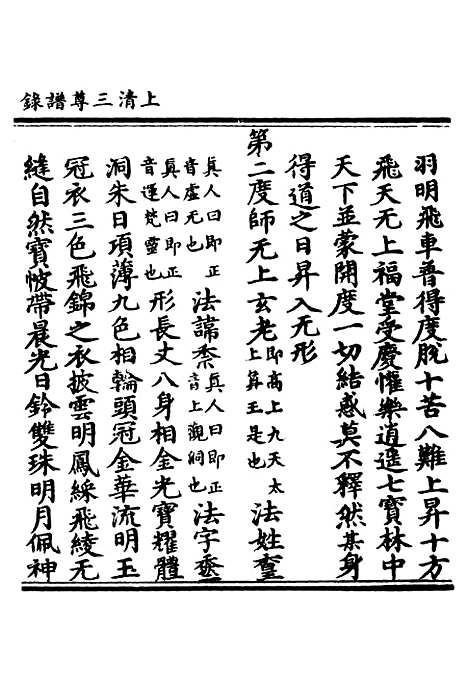 上清三尊譜錄
羽明飛車普得度脫十苦八難上昇十方
飛天无上福堂受慶懽樂逍遥七寶林中
天下並蒙開度一切結惑莫不釋然其身
得道之日昇入无形
第二度師无上玄老即高上九天太上昇王是也法姓
真人曰即正音虛无也法諱真人曰即正音上洞也法字
真人曰即正音運梵靈也形長丈八身相金光寶耀體
洞朱日項薄九色相輪頭冠金華流明玉
冠衣三色飛錦之衣披雲明鳳綵飛綾无
縫自然寶帔帶晨光日鈴雙珠明月佩神